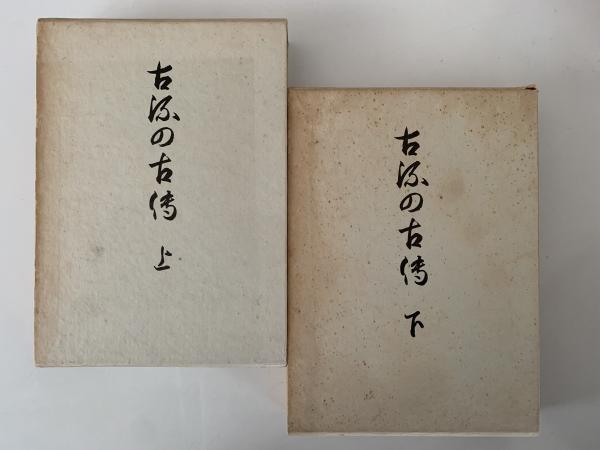 古流の古傳 上
古流の古傳 下